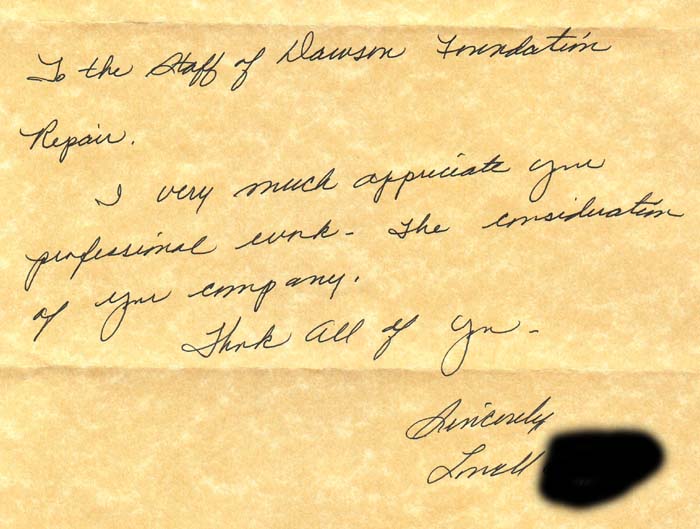 To the Staff of Dawson Foundation
Repair.
I very much appreciate your
professional work - The consideration
of your company.
Thank All of you -
Sincerely
Lowell